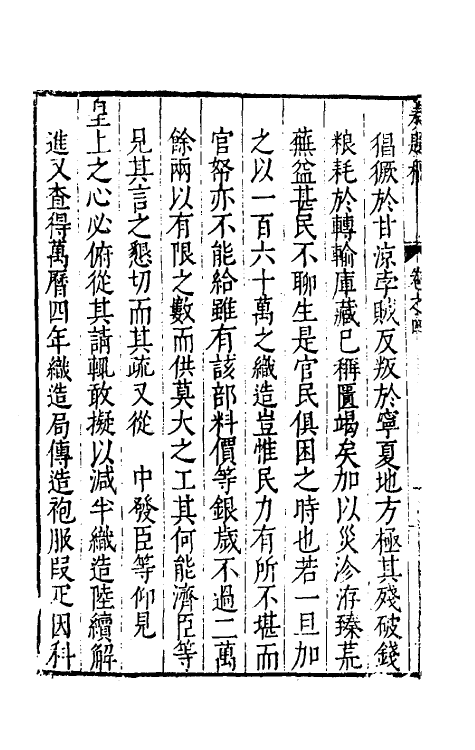 卷之四
倡獗於甘涼孛賊反叛於寧夏地方極其殘破錢
粮耗於轉輸庫藏已稱匱竭矣加以災沴洊臻荒
蕪益甚民不聊生是官民俱困之時也若一旦加
之以一百六十萬之織造豈惟民力有所不堪而
官帑亦不能給雖有該部料價等銀歲不過二萬
餘兩以有限之數而供莫大之工其何能濟臣等
見其言之懇切而其疏又從　中發臣等仰見
皇上之心必俯從其請輒敢擬以減半織造陸續解
進又查得萬曆四年織造局傳造袍服段疋因科